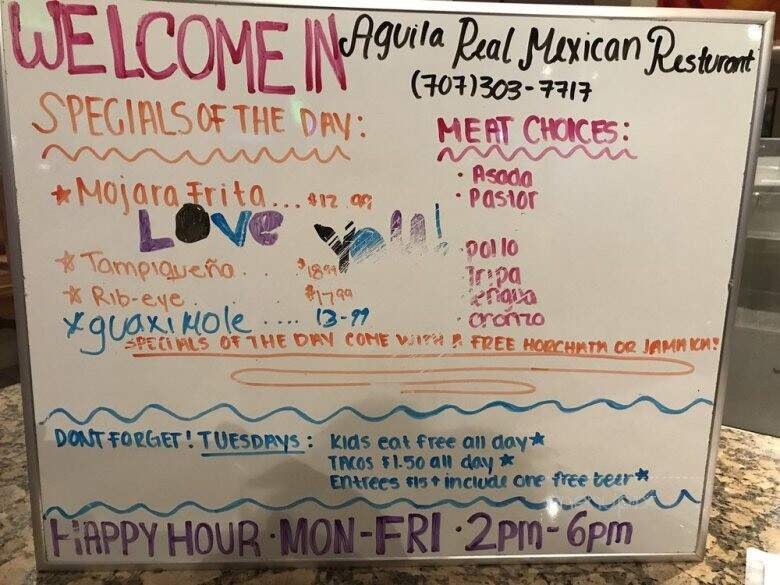 WELCOME IN Aguila Real Mexican Resturant
(707)303-7717
SPECIALS OF THE DAY:
★ Mojara Frita... $12.99
LOVE You!
★ Tampiqueño. $18.99
★ Rib-eye. $17.99
★ guaximole .... 13-99
SPECIALS OF THE DAY COME WITH A FREE HORCHATA OR JAMAICA!
MEAT CHOICES:
• Asada
• Pastor
• pollo
• Tripa
• lengua
• chorizo
DONT FORGET! TUESDAYS: Kids eat free all day★
TACOS $1.50 all day ★
Entrees $15+ include one free beer★
HAPPY HOUR • MON-FRI • 2pm-6pm